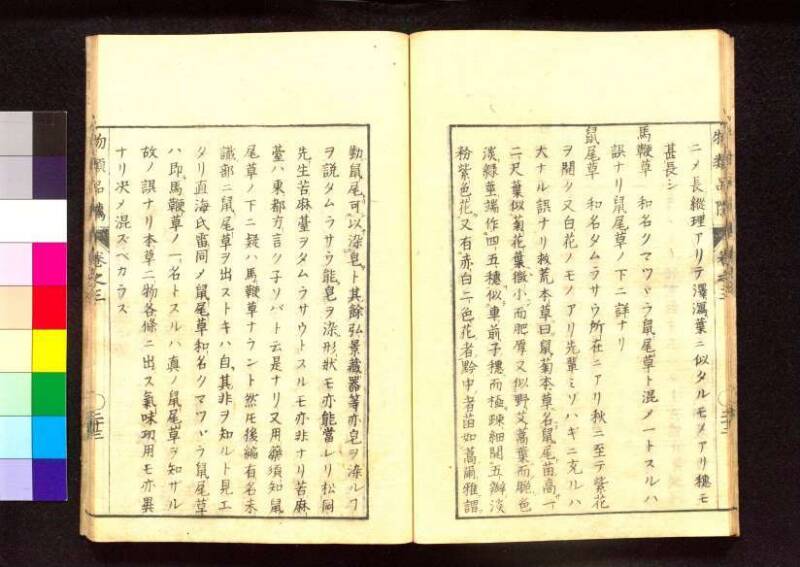 ニメ長縦理アリテ澤瀉葉ニ似タルモメアリ穂モ
甚長シ
馬鞭草 和名クマツヾラ鼠尾草ト混メ一トスルハ
誤ナリ鼠尾草ノ下ニ詳ナリ
鼠尾草 和名タムラサウ所在ニアリ秋ニ至テ紫花
ヲ開ク又白花ノモノアリ先輩ミソハギニ充ルハ
大ナル誤ナリ救荒本草曰鼠菊本草名鼠尾苗高一
二尺葉似菊花葉微小而肥厚又似野艾蒿葉而脆色
淡緑莖端作四五穂似車前子穂而極疎細開五瓣淡
粉紫色花又有赤白二色花者黔中者苗如蒿爾雅謂
物類品隲 巻之三 二十三
勤鼠尾可以染皂ト其餘弘景蔵器等亦皂ヲ染ルフ
ヲ説タムラサウ能皂ヲ染形状モ亦能當レリ松岡
先生苦麻薹ヲタムラサウトスルモ亦非ナリ苦麻
薹ハ東都方言ク子ソバト云是ナリ又用藥須知鼠
尾草ノ下ニ疑ハ馬鞭草ナラント然モ後編有名未
識部ニ鼠尾草ヲ出ストキハ自其非ヲ知ルト見エ
タリ直海氏雷同メ鼠尾草和名クマツヾラ鼠尾草
ハ即馬鞭草ノ一名トスルハ真ノ鼠尾草ヲ知サル
故ノ誤ナリ本草二物各條ニ出ス氣味功用モ亦異
ナリ决メ混ズベカラス
物類品隲 巻之三 二十三